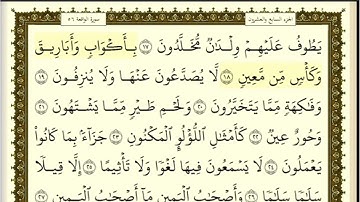 سورة الواقعة ٥٦ الجزء السابع والعشرون
يَطُوفُ عَلَيْهِمْ وِلْدَٰنٌ مُّخَلَّدُونَ ١٧ بِأَكْوَابٍ وَأَبَارِيقَ
وَكَأْسٍ مِّن مَّعِينٍ ١٨ لَّا يُصَدَّعُونَ عَنْهَا وَلَا يُنزِفُونَ ١٩
وَفَٰكِهَةٍ مِّمَّا يَتَخَيَّرُونَ ٢٠ وَلَحْمِ طَيْرٍ مِّمَّا يَشْتَهُونَ ٢١
وَحُورٌ عِينٌ ٢٢ كَأَمْثَٰلِ ٱللُّؤْلُؤِ ٱلْمَكْنُونِ ٢٣ جَزَآءًۢ بِمَا كَانُوا۟
يَعْمَلُونَ ٢٤ لَا يَسْمَعُونَ فِيهَا لَغْوًا وَلَا تَأْثِيمًا ٢٥ إِلَّا قِيلًا
سَلَٰمًا سَلَٰمًا ٢٦ وَأَصْحَٰبُ ٱلْيَمِينِ مَآ أَصْحَٰبُ ٱلْيَمِينِ ٢٧